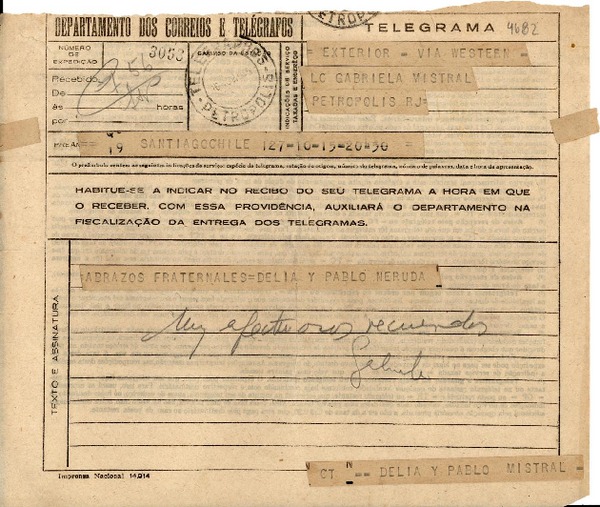 DEPARTAMENTO DOS CORREIOS E TELÉGRAFOS
TELEGRAMA 4682
PETROPOLIS
NÚMERO DE EXPEDIÇÃO
3053
CARIMBO DA ESTAÇÃO
PETROPOLIS
INDICAÇÕES DE SERVIÇO TAXADAS E ENDERÊÇO
= EXTERIOR - VIA WESTERN -
LC GABRIELA MISTRAL
PETROPOLIS RJ=
Recebido
De
às horas
por
19 SANTIAGOCHILE 127-10-15-20-50 =
O preâmbulo contém as seguintes indicações de serviço: espécie do telegrama, estação de origem, número do telegrama, número de palavras, data e hora da apresentação.
HABITUE-SE A INDICAR NO RECIBO DO SEU TELEGRAMA A HORA EM QUE
O RECEBER. COM ESSA PROVIDÊNCIA, AUXILIARÁ O DEPARTAMENTO NA
FISCALIZAÇÃO DA ENTREGA DOS TELEGRAMAS.
TEXTO E ASSINATURA
ABRAZOS FRATERNALES=DELIA Y PABLO NERUDA
Muy afectuosos recuerdos
CT N -- DELIA Y PABLO MISTRAL -
Imprensa Nacional 14.014